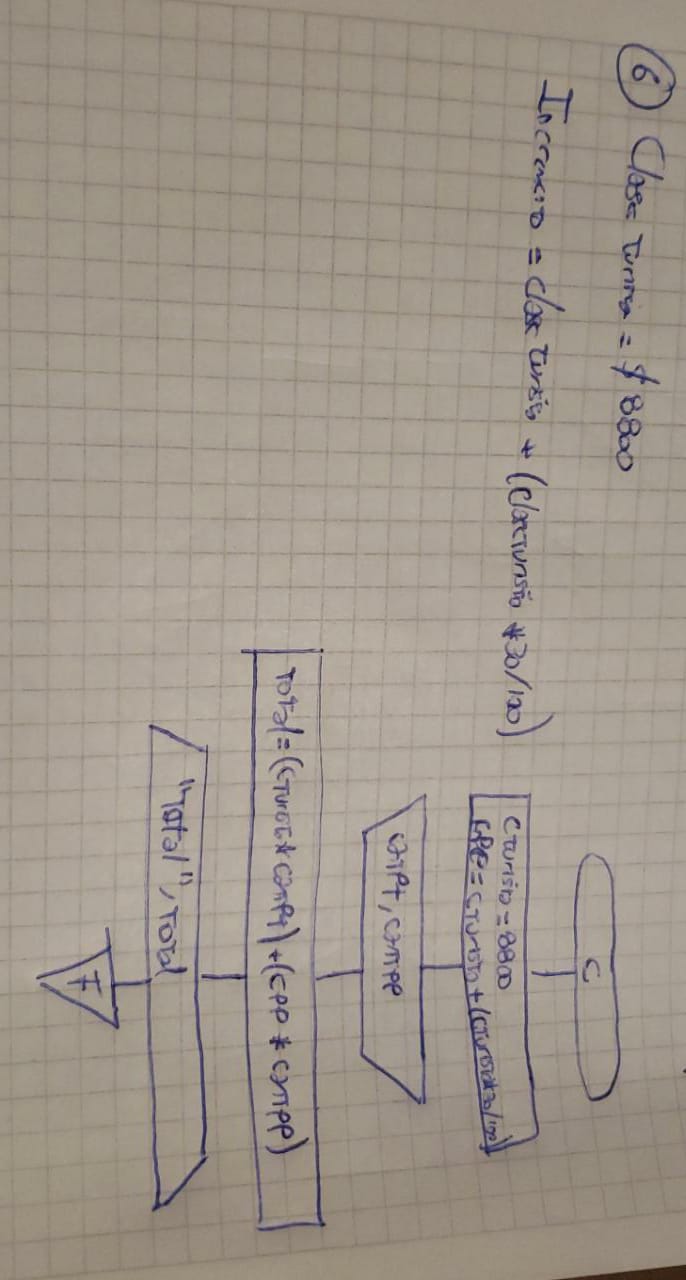 6 Clase Turista = $8800
Incremento = clase turista + (claseturista *30/100)
C
Cturista = 8800
CPP = CTurista + (CTurista*30/100)
cantPt, cantPP
Total = (CTurista * cantPt) + (CPP * cantPP)
"Total", Total
F